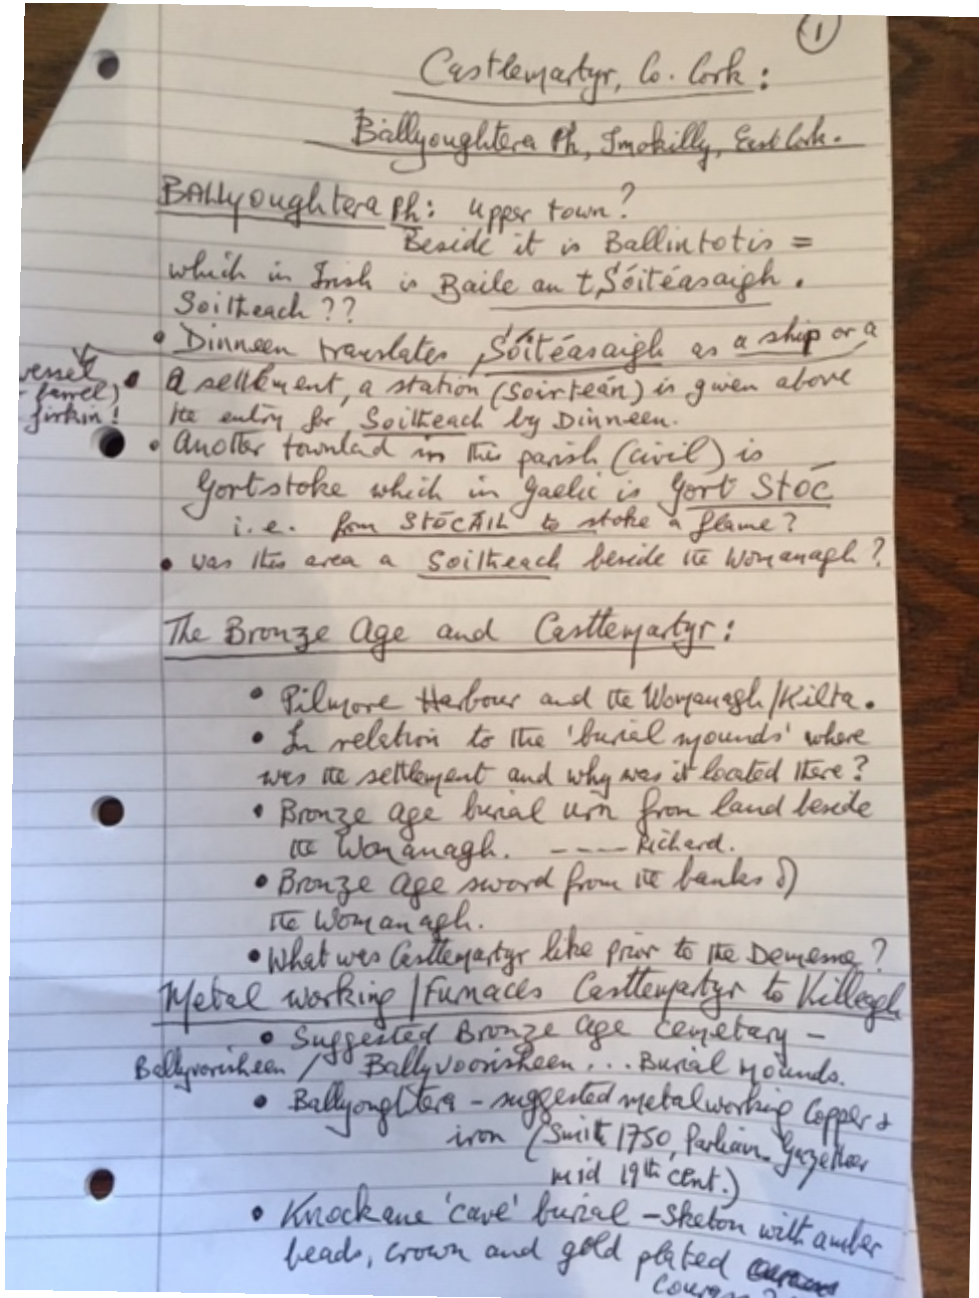 1
Castlemartyr, Co. Cork:
Ballyoughtera Ph, Imokilly, East Cork.
BALLyoughtera Ph: Upper town?
Beside it is Ballintotis =
which in Irish is Baile an tSóitéasaigh.
Soitheach??
• Dinneen translates, Sóitéasaigh as a ship or a
vessel
- barrel)
firkin!
• A settlement, a station (Soirteán) is given above
the entry for Soitheach by Dinneen.
• Another townland in this parish (civil) is
Gortstoke which in Gaelic is Gort Stóc
i.e. from STÓCÁIL to stoke a flame?
• Was this area a Soitheach beside the Womanagh?
The Bronze Age and Castlemartyr:
• Pilmore Harbour and the Womanagh/Kilta.
• In relation to the 'burial mounds' where
was the settlement and why was it located there?
• Bronze Age burial urn from land beside
the Womanagh. ---- Richard.
• Bronze Age sword from the banks of
the Womanagh.
• What was Castlemartyr like prior to the Demesne?
Metal working/Furnaces Castlemartyr to Killeagh
• Suggested Bronze Age Cemetary -
Ballyvorisheen / Ballyvoorisheen ... Burial Mounds.
• Ballyoughtera - suggested metalworking Copper &
iron (Smith 1750, Parliam. Gazetteer
mid 19th Cent.)
• Knockane 'cave' burial - Skeleton with amber
beads, crown and gold plated